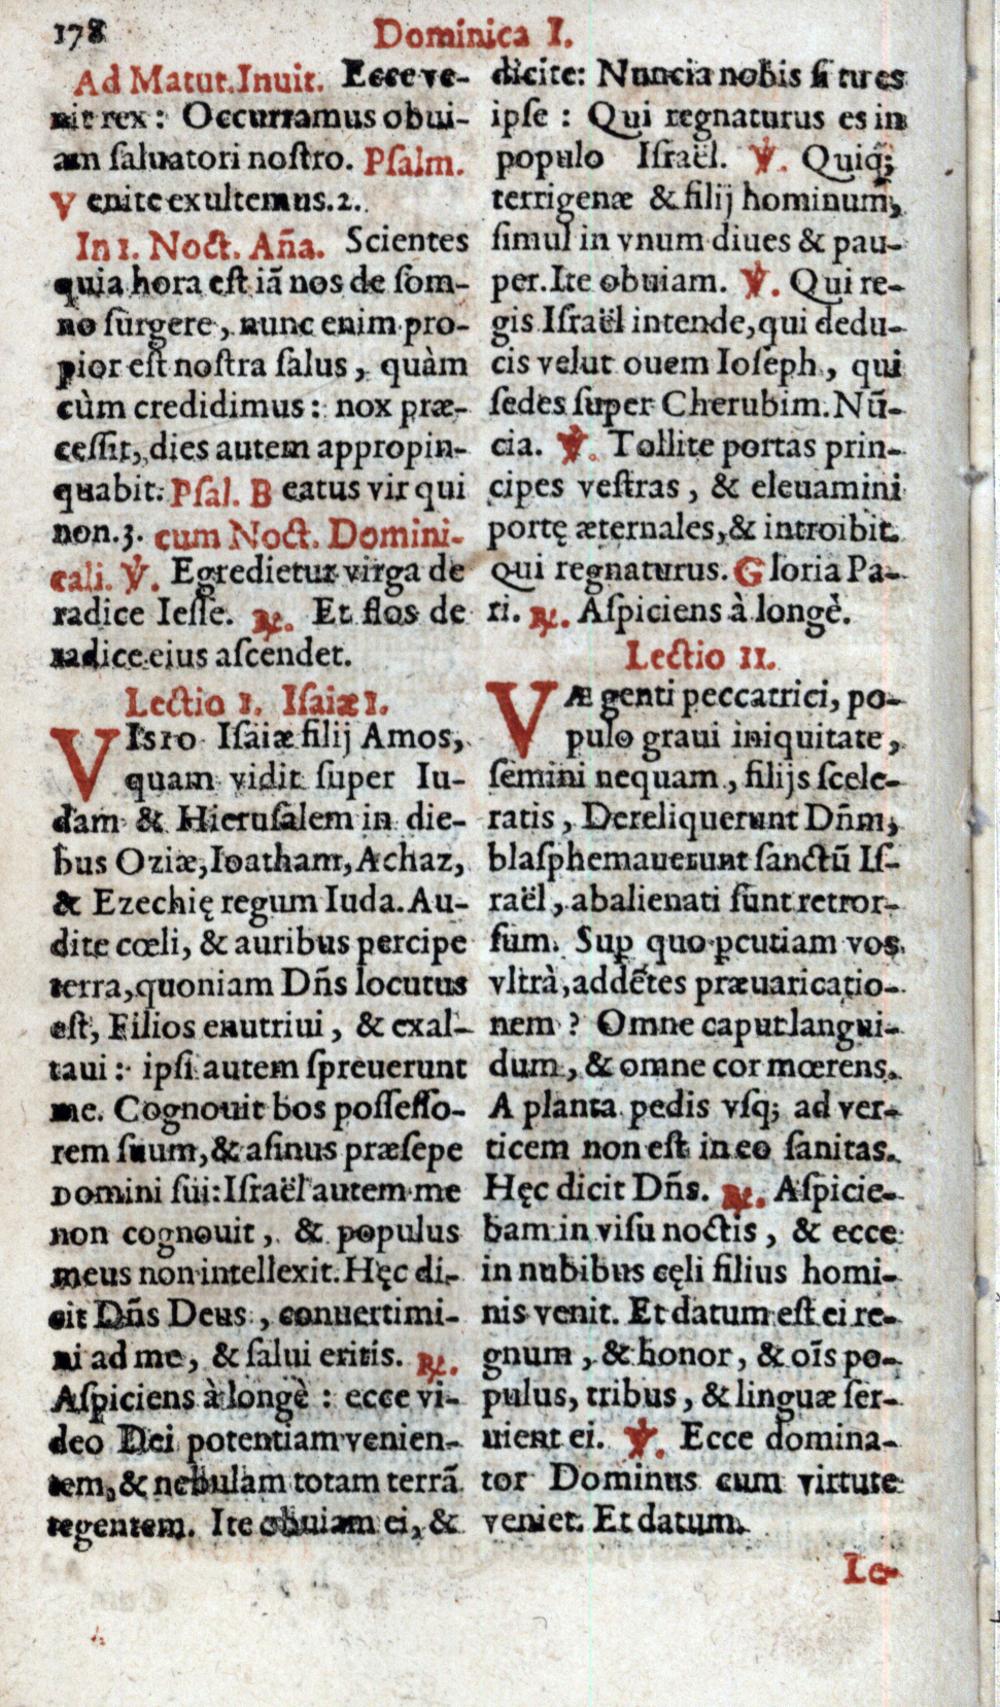 178
Dominica I.
Ad Matut. Inuit. Ecce ve-
nit rex: Occurramus obui-
am ſaluatori noſtro. Pſalm.
Venite exultemus. 2.
In 1. Noct. Aña. Scientes
quia hora eſt iã nos de ſom-
no ſurgere, nunc enim pro-
pior eſt noſtra ſalus, quàm
cùm credidimus: nox præ-
ceſſit, dies autem appropin-
quabit. Pſal. Beatus vir qui
non. 3. cum Noct. Domini-
cali. ℣. Egredietur virga de
radice Ieſſe. ℟. Et flos de
radice eius aſcendet.
Lectio I. Iſaiæ I.
VIsio Iſaiæ filij Amos,
quam vidit ſuper Iu-
dam & Hieruſalem in die-
bus Oziæ, Ioatham, Achaz,
& Ezechię regum Iuda. Au-
dite cœli, & auribus percipe
terra, quoniam Dñs locutus
eſt, Filios enutriui, & exal-
taui: ipſi autem ſpreuerunt
me. Cognouit bos poſſeſſo-
rem ſuum, & aſinus præſepe
Domini ſui: Iſraël autem me
non cognouit, & populus
meus non intellexit. Hęc di-
cit Dñs Deus, conuertimi-
ni ad me, & ſalui eritis. ℟.
Aſpiciens à longè: ecce vi-
deo Dei potentiam venien-
tem, & nebulam totam terrã
tegentem. Ite obuiam ei, &
dicite: Nuncia nobis ſi tu es
ipſe: Qui regnaturus es in
populo Iſraël. ℣. Quiq;
terrigenæ & filij hominum,
ſimul in vnum diues & pau-
per. Ite obuiam. ℣. Qui re-
gis Iſraël intende, qui dedu-
cis velut ouem Ioſeph, qui
ſedes ſuper Cherubim. Nũ-
cia. ℣. Tollite portas prin-
cipes veſtras, & eleuamini
portę æternales, & introibit.
Qui regnaturus. Gloria Pa-
ri. ℟. Aſpiciens à longè.
Lectio II.
VÆ genti peccatrici, po-
pulo graui iniquitate,
ſemini nequam, filijs ſcele-
ratis, Dereliquerunt Dñm,
blaſphemauerunt ſanctũ Iſ-
raël, abalienati ſunt retror-
ſum. Suꝑ quo ꝑcutiam vos
vltrà, addẽtes præuaricatio-
nem? Omne caput langui-
dum, & omne cor mœrens.
A planta pedis vſq; ad ver-
ticem non eſt in eo ſanitas.
Hęc dicit Dñs. ℟. Aſpicie-
bam in viſu noctis, & ecce
in nubibus cęli filius homi-
nis venit. Et datum eſt ei re-
gnum, & honor, & oĩs po-
pulus, tribus, & linguæ ſer-
uient ei. ℣. Ecce domina-
tor Dominus cum virtute
veniet. Et datum.
Le-